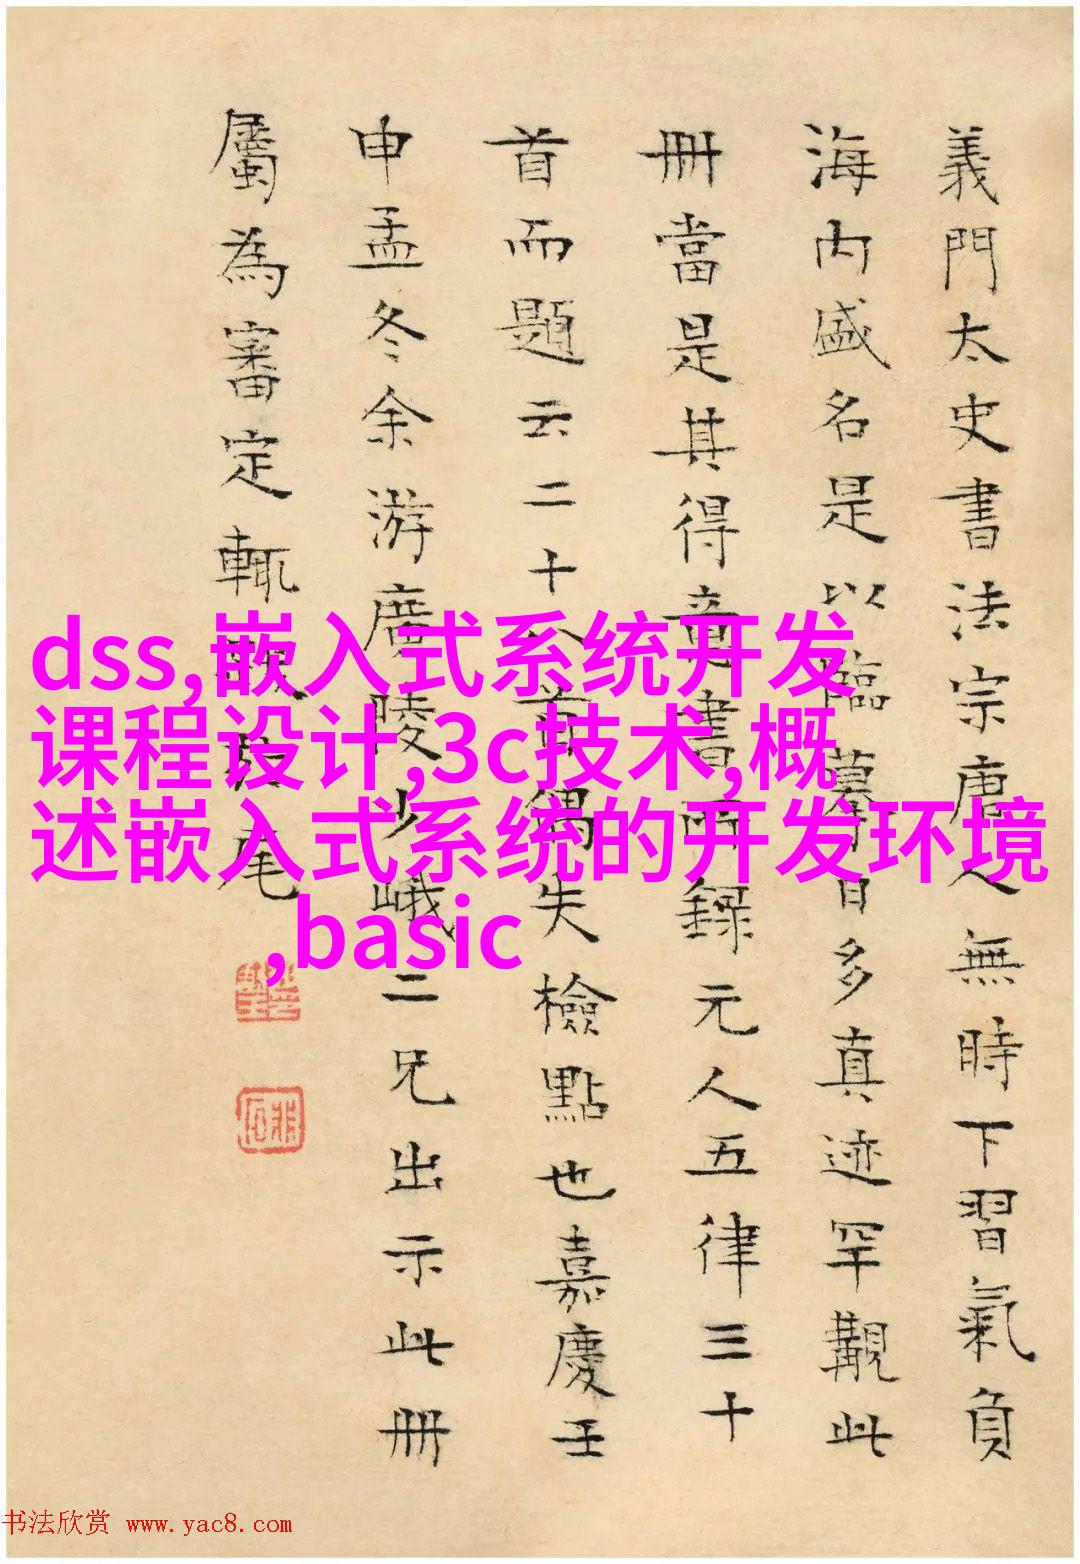 義門太史書法宗唐人無時下習氣負
海内盛名是以臨摹日多真迹罕覯此
冊當是其得意書而錄元人五律三十
首而題云二十八首偶失檢點也嘉慶壬
申孟冬余游廣陵少峨二兄出示此冊
屬為審定輒跋於尾
dss,嵌入式系统开发
课程设计,3c技术,概
述嵌入式系统的开发环境
,basic
书法欣赏 www.yac8.com